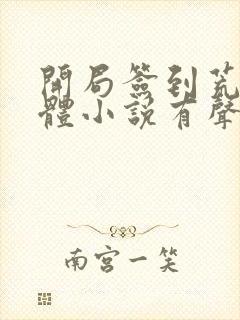 開局簽到荒
體小說有聲
南宮一笑